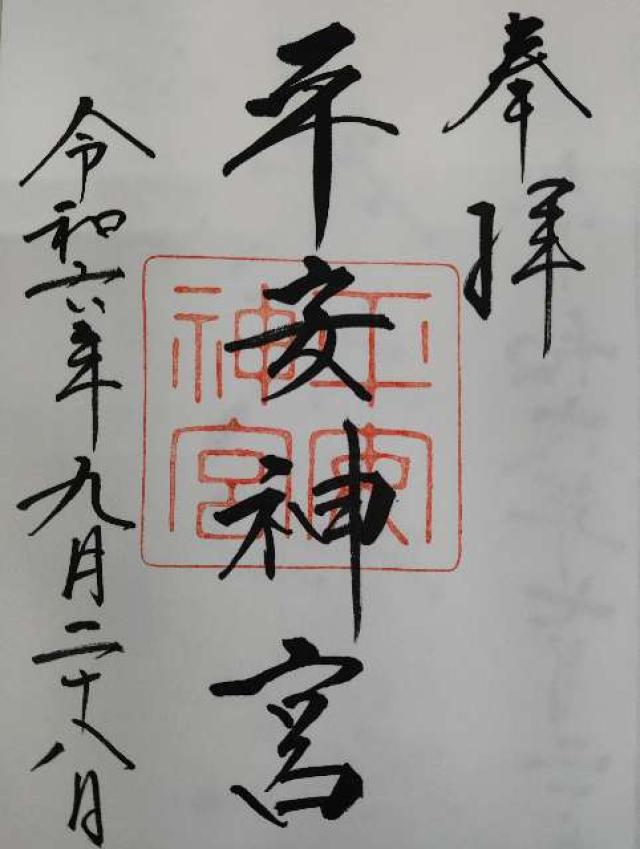 奉拝
平安神宮
平安
神宮
令和六年九月二十八日